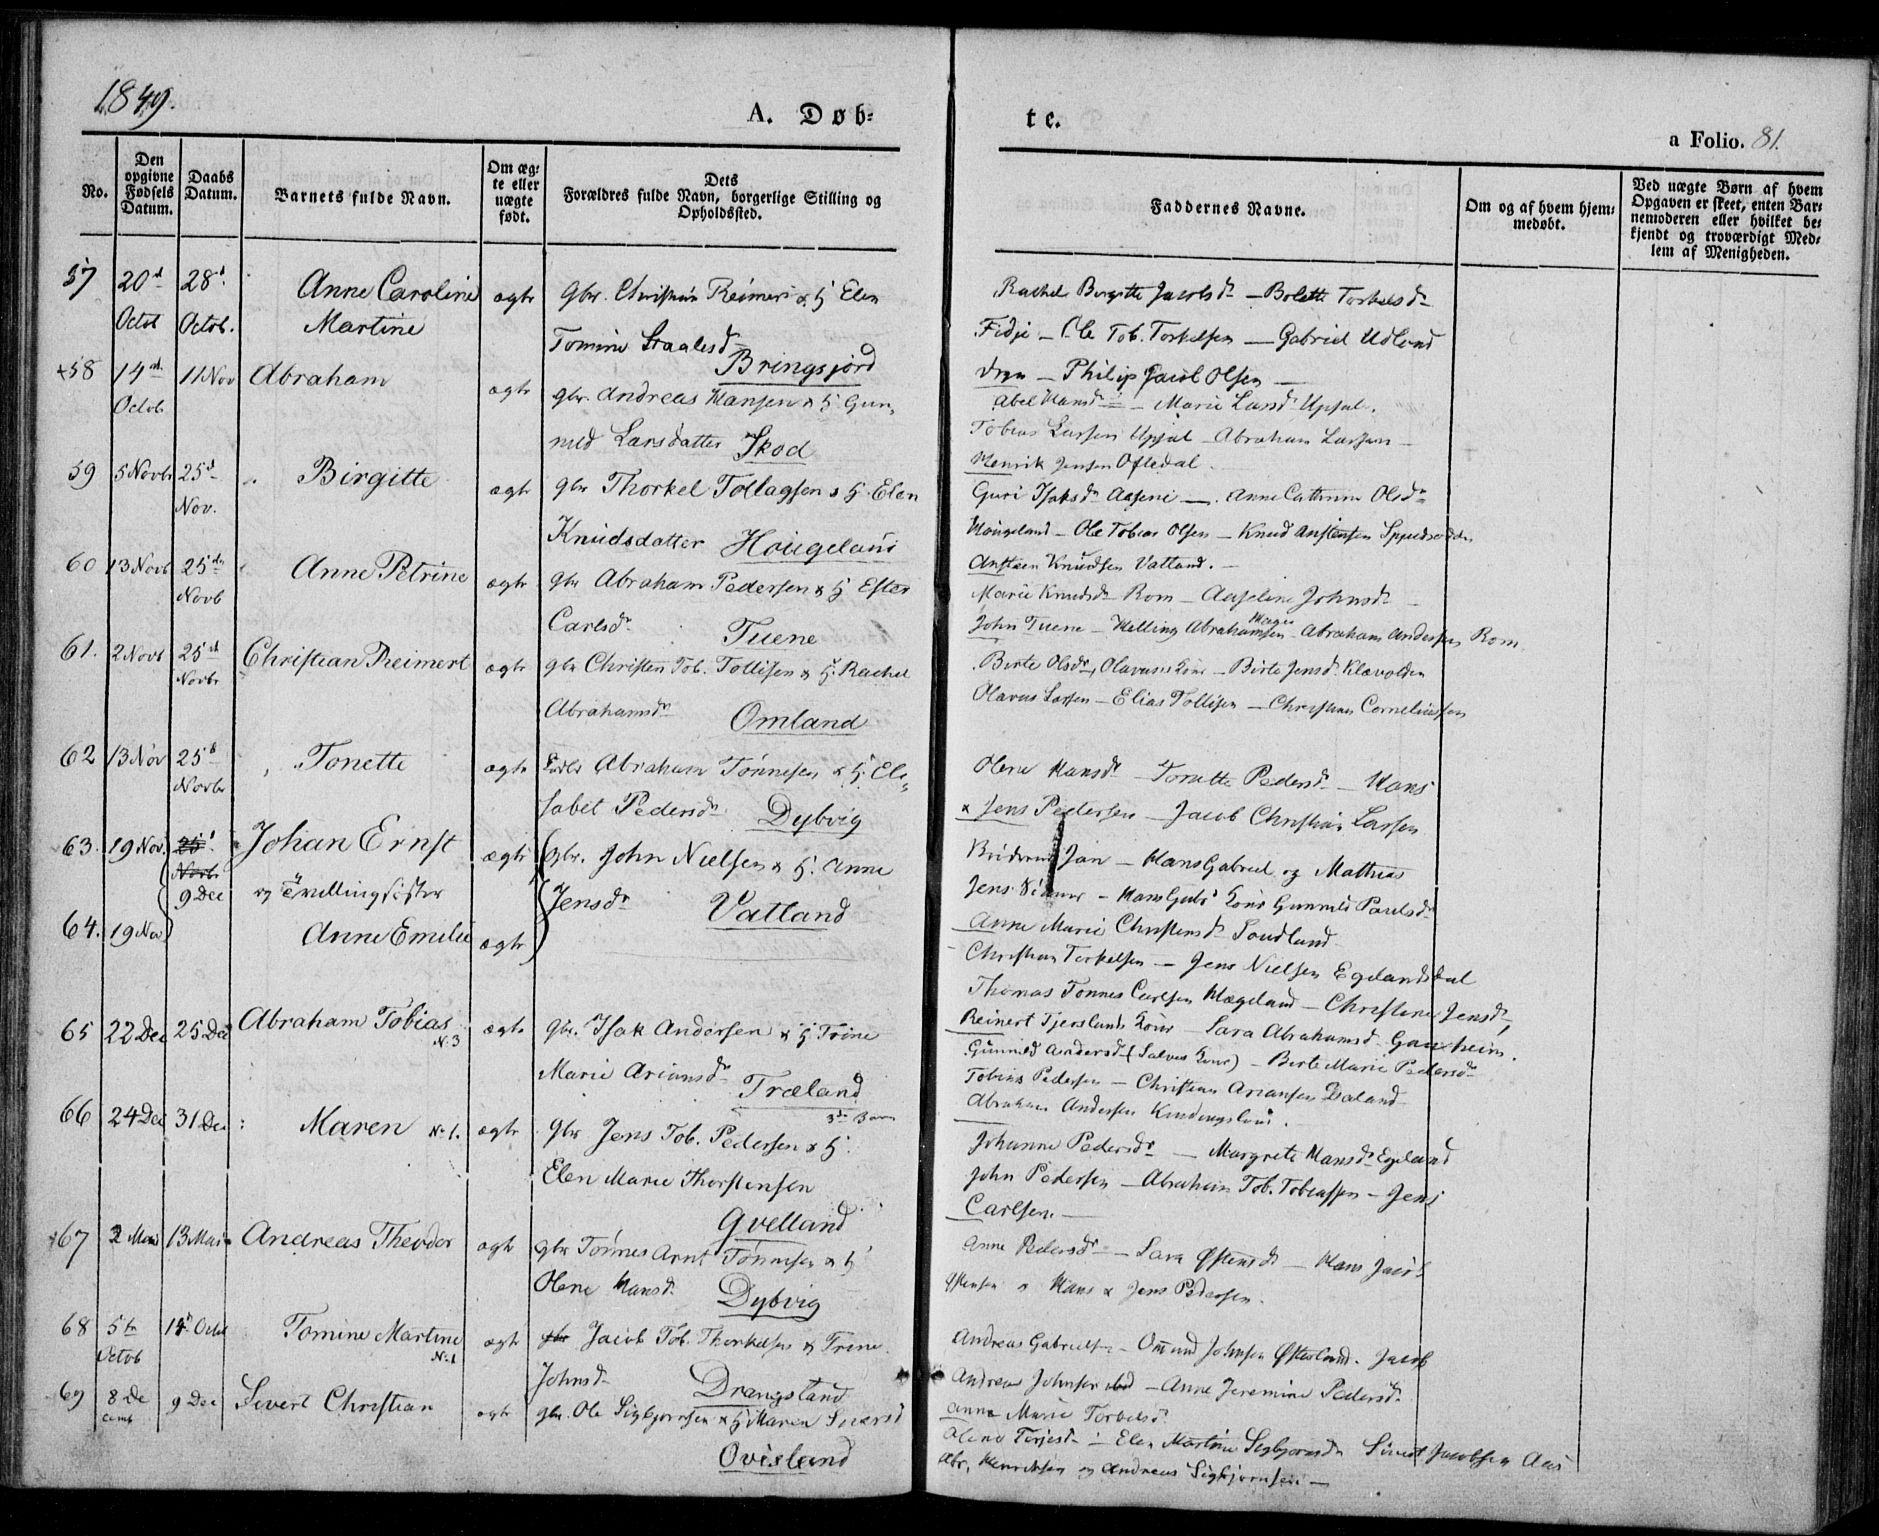 1849.
A. Døb-
te.
a Folio. 81.
No.
Den opgivne Fødsels Datum.
Daabs Datum.
Barnets fulde Navn.
Om æg-
te eller
uægte
født.
Dets
Forældres fulde Navn, borgerlige Stilling og
Opholdssted.
Faddernes Navne.
Om og af hvem hjem-
medøbt.
Ved uægte Børn af hvem
Opgaven er skeet, enten Bar-
nemoderen eller hvilket be-
kjendt og troværdigt Med-
lem af Menigheden.
57 20d Octob 28d Octob. Anne Caroline Martine ægte
gbr. Christian Reimers & h Elen
Tomine Staalesd
Bringsjord
Rachel Birgitte Jacobsdr — Bolette Torkelsdr
Fidje — Ole Tob. Torkelsen — Gabriel Udland
— Philip Jacob Olsen —
58 14d Octob 11 Nov Abraham ægte
gbr. Andreas Hansen & h Gun-
nild Larsdatter Skod
Abel Hansdr — Marie Larsd Upsal.
Tobias Larsen Upsal — Abraham Larsen —
Henrik Jensen Oftedal.
59 5 Novbr 25d Nov. Birgitte ægte
gbr Thorkel Tollagsen & h Elen
Knudsdatter Hougeland
Guri Isaksdr Aaseni — Anne Cathrine Olsdr
Hougeland — Ole Tobias Olsen — Knud Anstensen
Ansteen Knudsen Vatland. —
60 13 Novb 25de Novb Anne Petrine ægte
gbr Abraham Pedersen & h Ester
Carlsdr Tuene
Marie Knudsdr Rom — Aaseline Johnsdr —
John Tuene — Helling Abrahamsen — Abraham Andersen Rom
61. 2 Novb 25d Novbr Christian Reimert ægte
gbr Christen Tob. Tollisen & h. Rachel
Abrahamsdr Omland
Birte Olsdr, Olavus Kone — Birte Jensd. Klævolden
Olavus Larsen — Elias Tollisen — Christian Corneliussen
62 13 Nov 25d Novbr Tonette ægte
Abraham Tønnesen & h. Eli-
sabet Pedersdr Dybvig
Olene Hansdr — Tonette Pedersdr — Hans
& Jens Pedersen — Jacob Christian Larsen
63. 19 Nov. 25d Novb. 9 Dec Johan Ernst ægte
og Tvillingsøster
gbr. John Nielsen & h. Anne
Jensdr Vatland
Jan — Hans Gabriel og Mathias
Jens — Hans Gabr Kone Gunnild Paulsdr
Anne Marie Christensdr Soudland
64. 19 Nov Anne Emilie ægte
Christian Torkelsen — Jens Nielsen Egelandsdal
Thomas Tønnes Carlsen Hægeland — Christine Jensdr,
Reinert Tjersland Kone — Sara Abrahamsd Gauxheim.
65 22 Dec 25 Dec Abraham Tobias N. 3 ægte
gbr. Isak Andersen & h Trine
Marie Ariansdr Træland
3de Barn
Gunnild Andersd (Salves Kone) — Berte Marie Pedersdr
Tobias Pedersen — Christian Ariansen Daland
Abraham Andersen
66 24 Dec 31 Dec Maren N. 1. ægte
gbr Jens Tob. Pedersen & h.
Elen Marie Thorstensen
Qvelland
Johanne Pedersdr — Margrete Hansdr Egeland
John Pedersen — Abraham Tob. Tobiassen — Jens
Carlsen. —
67 2 Mai 13 Mai Andreas Theodor ægte
gbr Tønnes Arnt Tønnesen & h
Olene Hansd. Dybvig
Anne Pedersdr — Sara Østensd — Hans Jacob
Østensen & Hans & Jens Pedersen.
68 5te Octob 14 Octob Tomine Martine N. 1 ægte
gbr Jacob Tob. Thorkelsen & Trine
Johnsdr Drangsland
Andreas Gabrielsen — Omund Johnsen Østerland. Jacob
Andreas Johnsen — Anne Jeremine Pedersdr
Anna Marie Torkelsdr
69 8 Decemb 9 Dec Sivert Christian ægte
gbr. Ole Sigbjørnsen & h Maren Siversd
Ovisland
Olene Terjesdr — Elen Martine Sigbjørnsdr Sivert Jacobsen Aas
Abr. Henriksen og Andreas Sigbjørnsen —